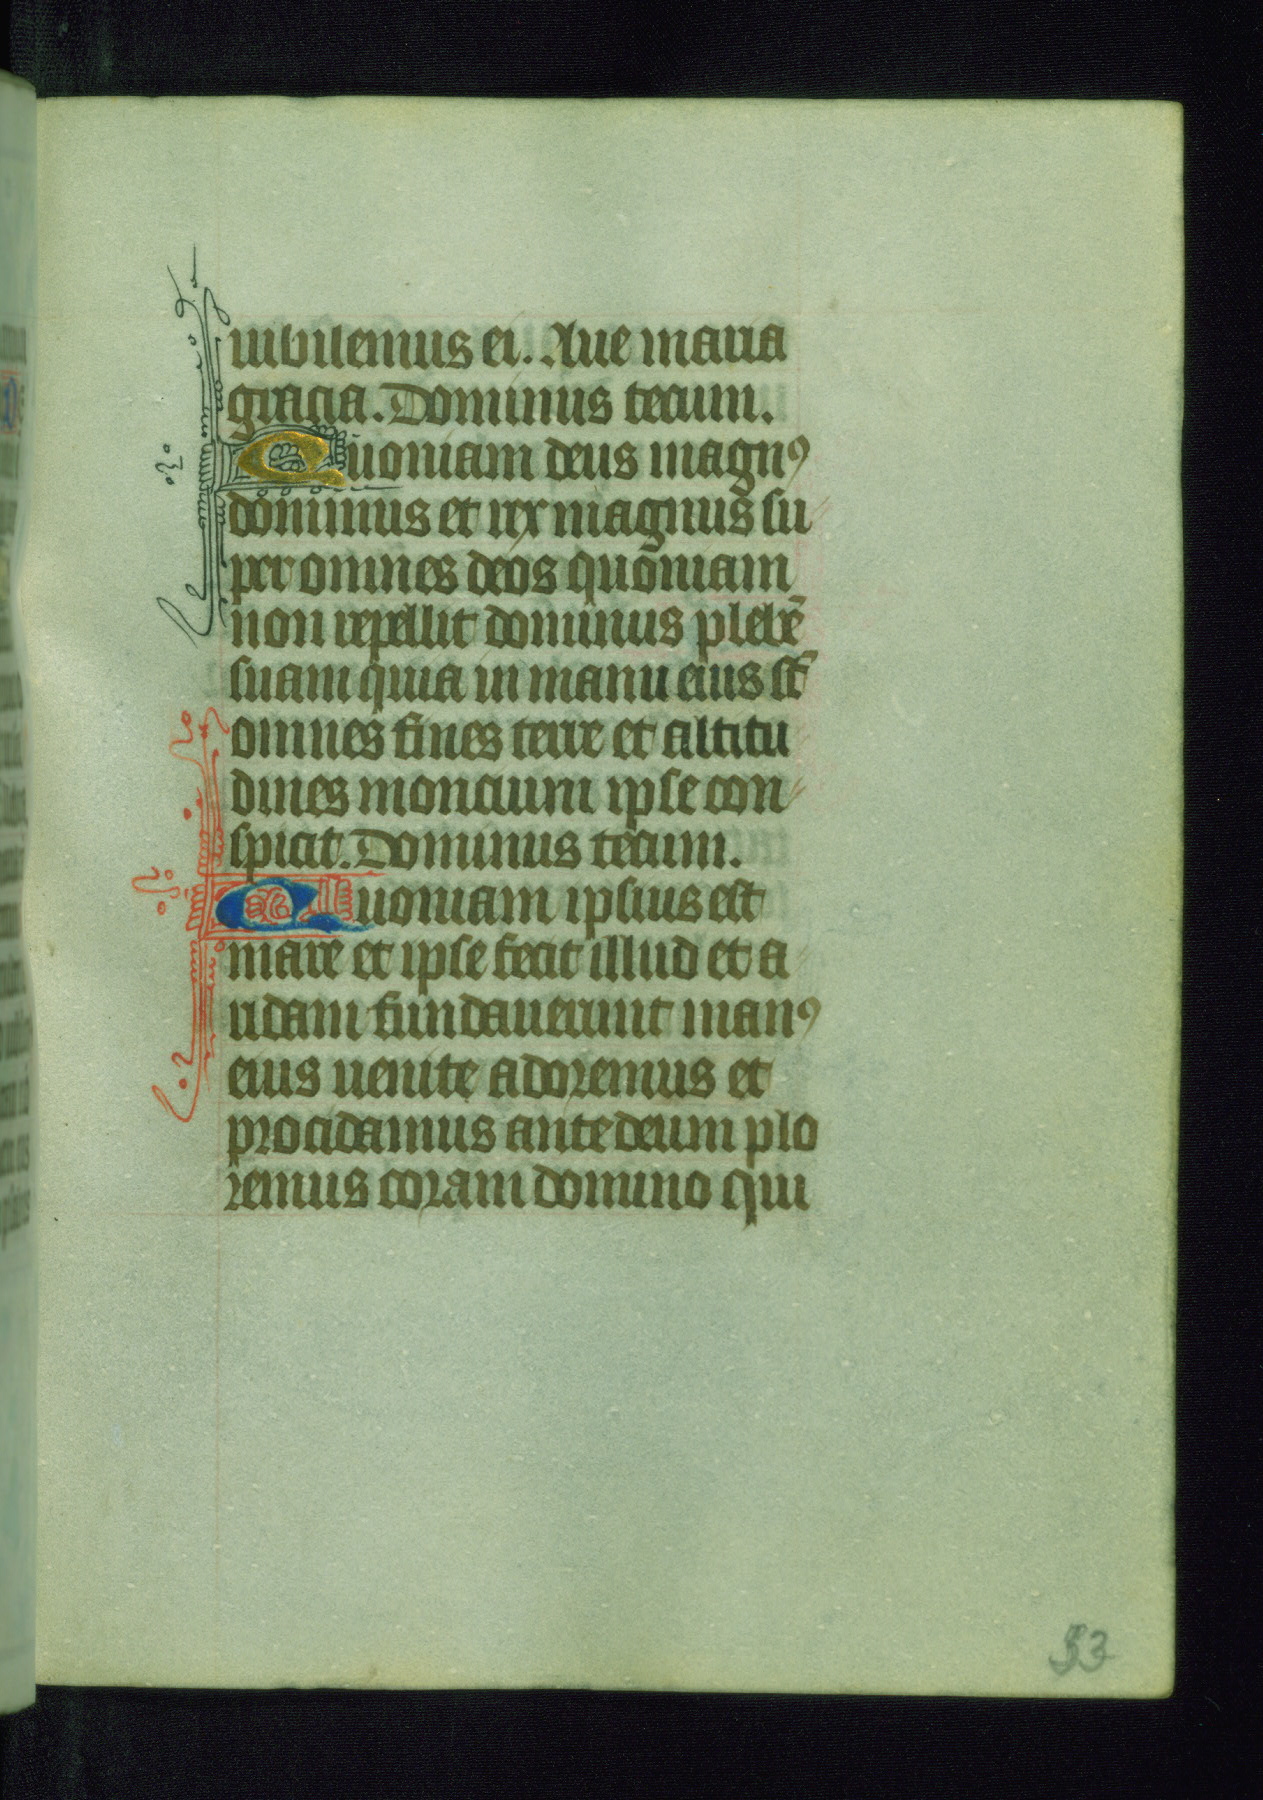 iubilemus ei. Aue maria
gracia. Dominus tecum.
Quoniam deus magnꝰ
dominus et rex magnus su
per omnes deos quoniam
non repellit dominus plebē
suam quia in manu eius st̄
omnes fines terre et altitu
dines moncium ipse con
spicit. Dominus tecum.
Quoniam ipsius est
mare et ipse fecit illud et a
ridam fundauerunt manꝰ
eius uenite adoremus et
procidamus ante deum plo
remus coram domino qui
53